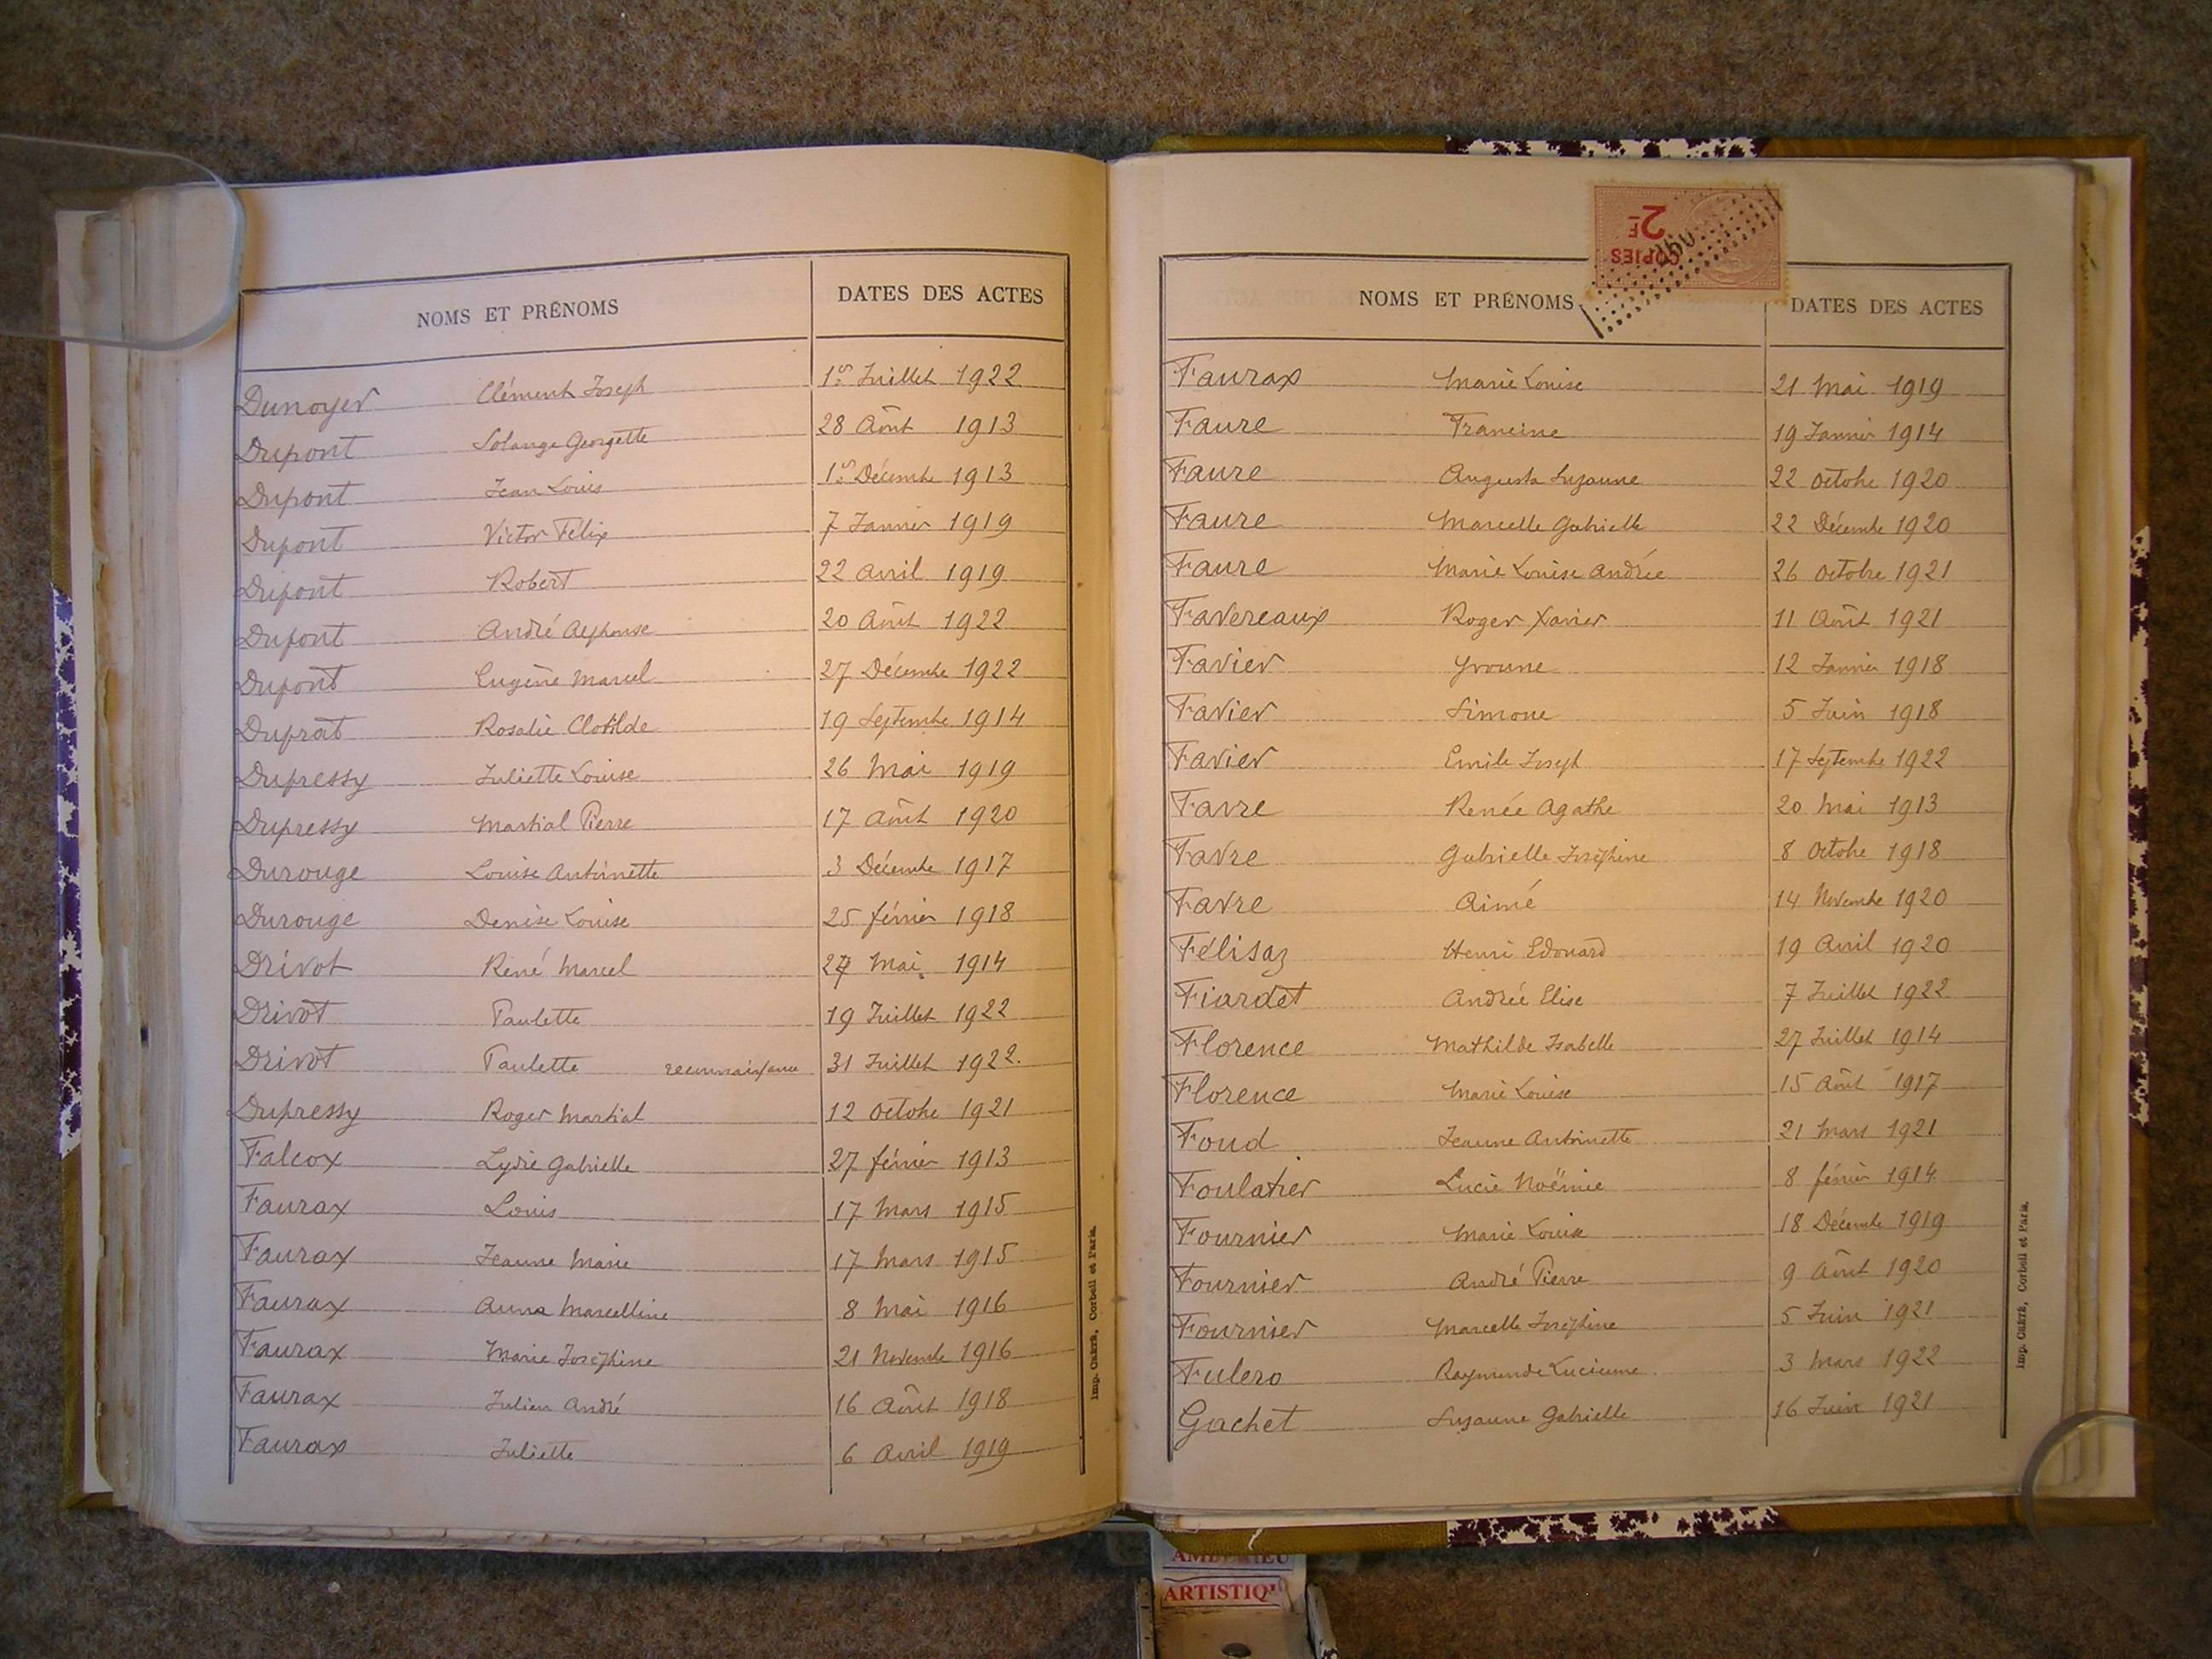 NOMS ET PRÉNOMS DATES DES ACTES
Dunoyer Clément Joseph 1er Juillet 1922
Dupont Solange Georgette 28 Août 1913
Dupont Jean Louis 1er Décembre 1913
Dupont Victor Félix 7 Janvier 1919
Dupont Robert 22 avril 1919
Dupont André Alphonse 20 Août 1922
Dupont Eugène Marcel 27 Décembre 1922
Duprat Rosalie Clotilde 19 Septembre 1914
Dupressy Juliette Louise 26 Mai 1919
Dupressy Martial Pierre 17 Août 1920
Durouge Louise Antoinette 3 Décembre 1917
Durouge Denise Louise 25 février 1918
Drivot René Marcel Mai 1914
Drivot Paulette 19 Juillet 1922
Drivot Paulette reconnaissance 31 Juillet 1922.
Dupressy Roger Martial 12 Octobre 1921
Falcox Lydie Gabrielle 27 février 1913
Faurax Louis 17 Mars 1915
Faurax Jeanne Marie 17 Mars 1915
Faurax Anna Marcelline 8 Mai 1916
Faurax Marie Joséphine 21 Novembre 1916
Faurax Julien André 16 Août 1918
Faurax Juliette 6 Avril 1919
Imp. Corbeil et Paris.
2F
COPIES
NOMS ET PRÉNOMS DATES DES ACTES
Faurax Marie Louise 21 Mai 1919
Faure Francine 19 Janvier 1914
Faure Augusta Suzanne 22 Octobre 1920
Faure Marcelle Gabrielle 22 Décembre 1920
Faure Marie Louise Andrée 26 Octobre 1921
Favereaux Roger Xavier 11 Août 1921
Favier Yvonne 12 Janvier 1918
Favier Simone 5 Juin 1918
Favier Emile Joseph 17 Septembre 1922
Favre Renée Agathe 20 Mai 1913
Favre Gabrielle Joséphine 8 Octobre 1918
Favre Aimé 14 Novembre 1920
Félisaz Henri Edouard 19 Avril 1920
Fiardet Andrée Elise 7 Juillet 1922
Florence Mathilde Isabelle 27 Juillet 1914
Florence Marie Louise 15 Août 1917
Foud Jeanne Antoinette 21 Mars 1921
Foulatier Lucie Noëmie 8 février 1914
Fournier Marie Louise 18 Décembre 1919
Fournier André Pierre 9 Août 1920
Fournier Marcelle Joséphine 5 Juin 1921
Fulero Raymonde Lucienne 3 Mars 1922
Gachet Suzanne Gabrielle 16 Juin 1921
Imp. Corbeil et Paris.
ARTISTIQ